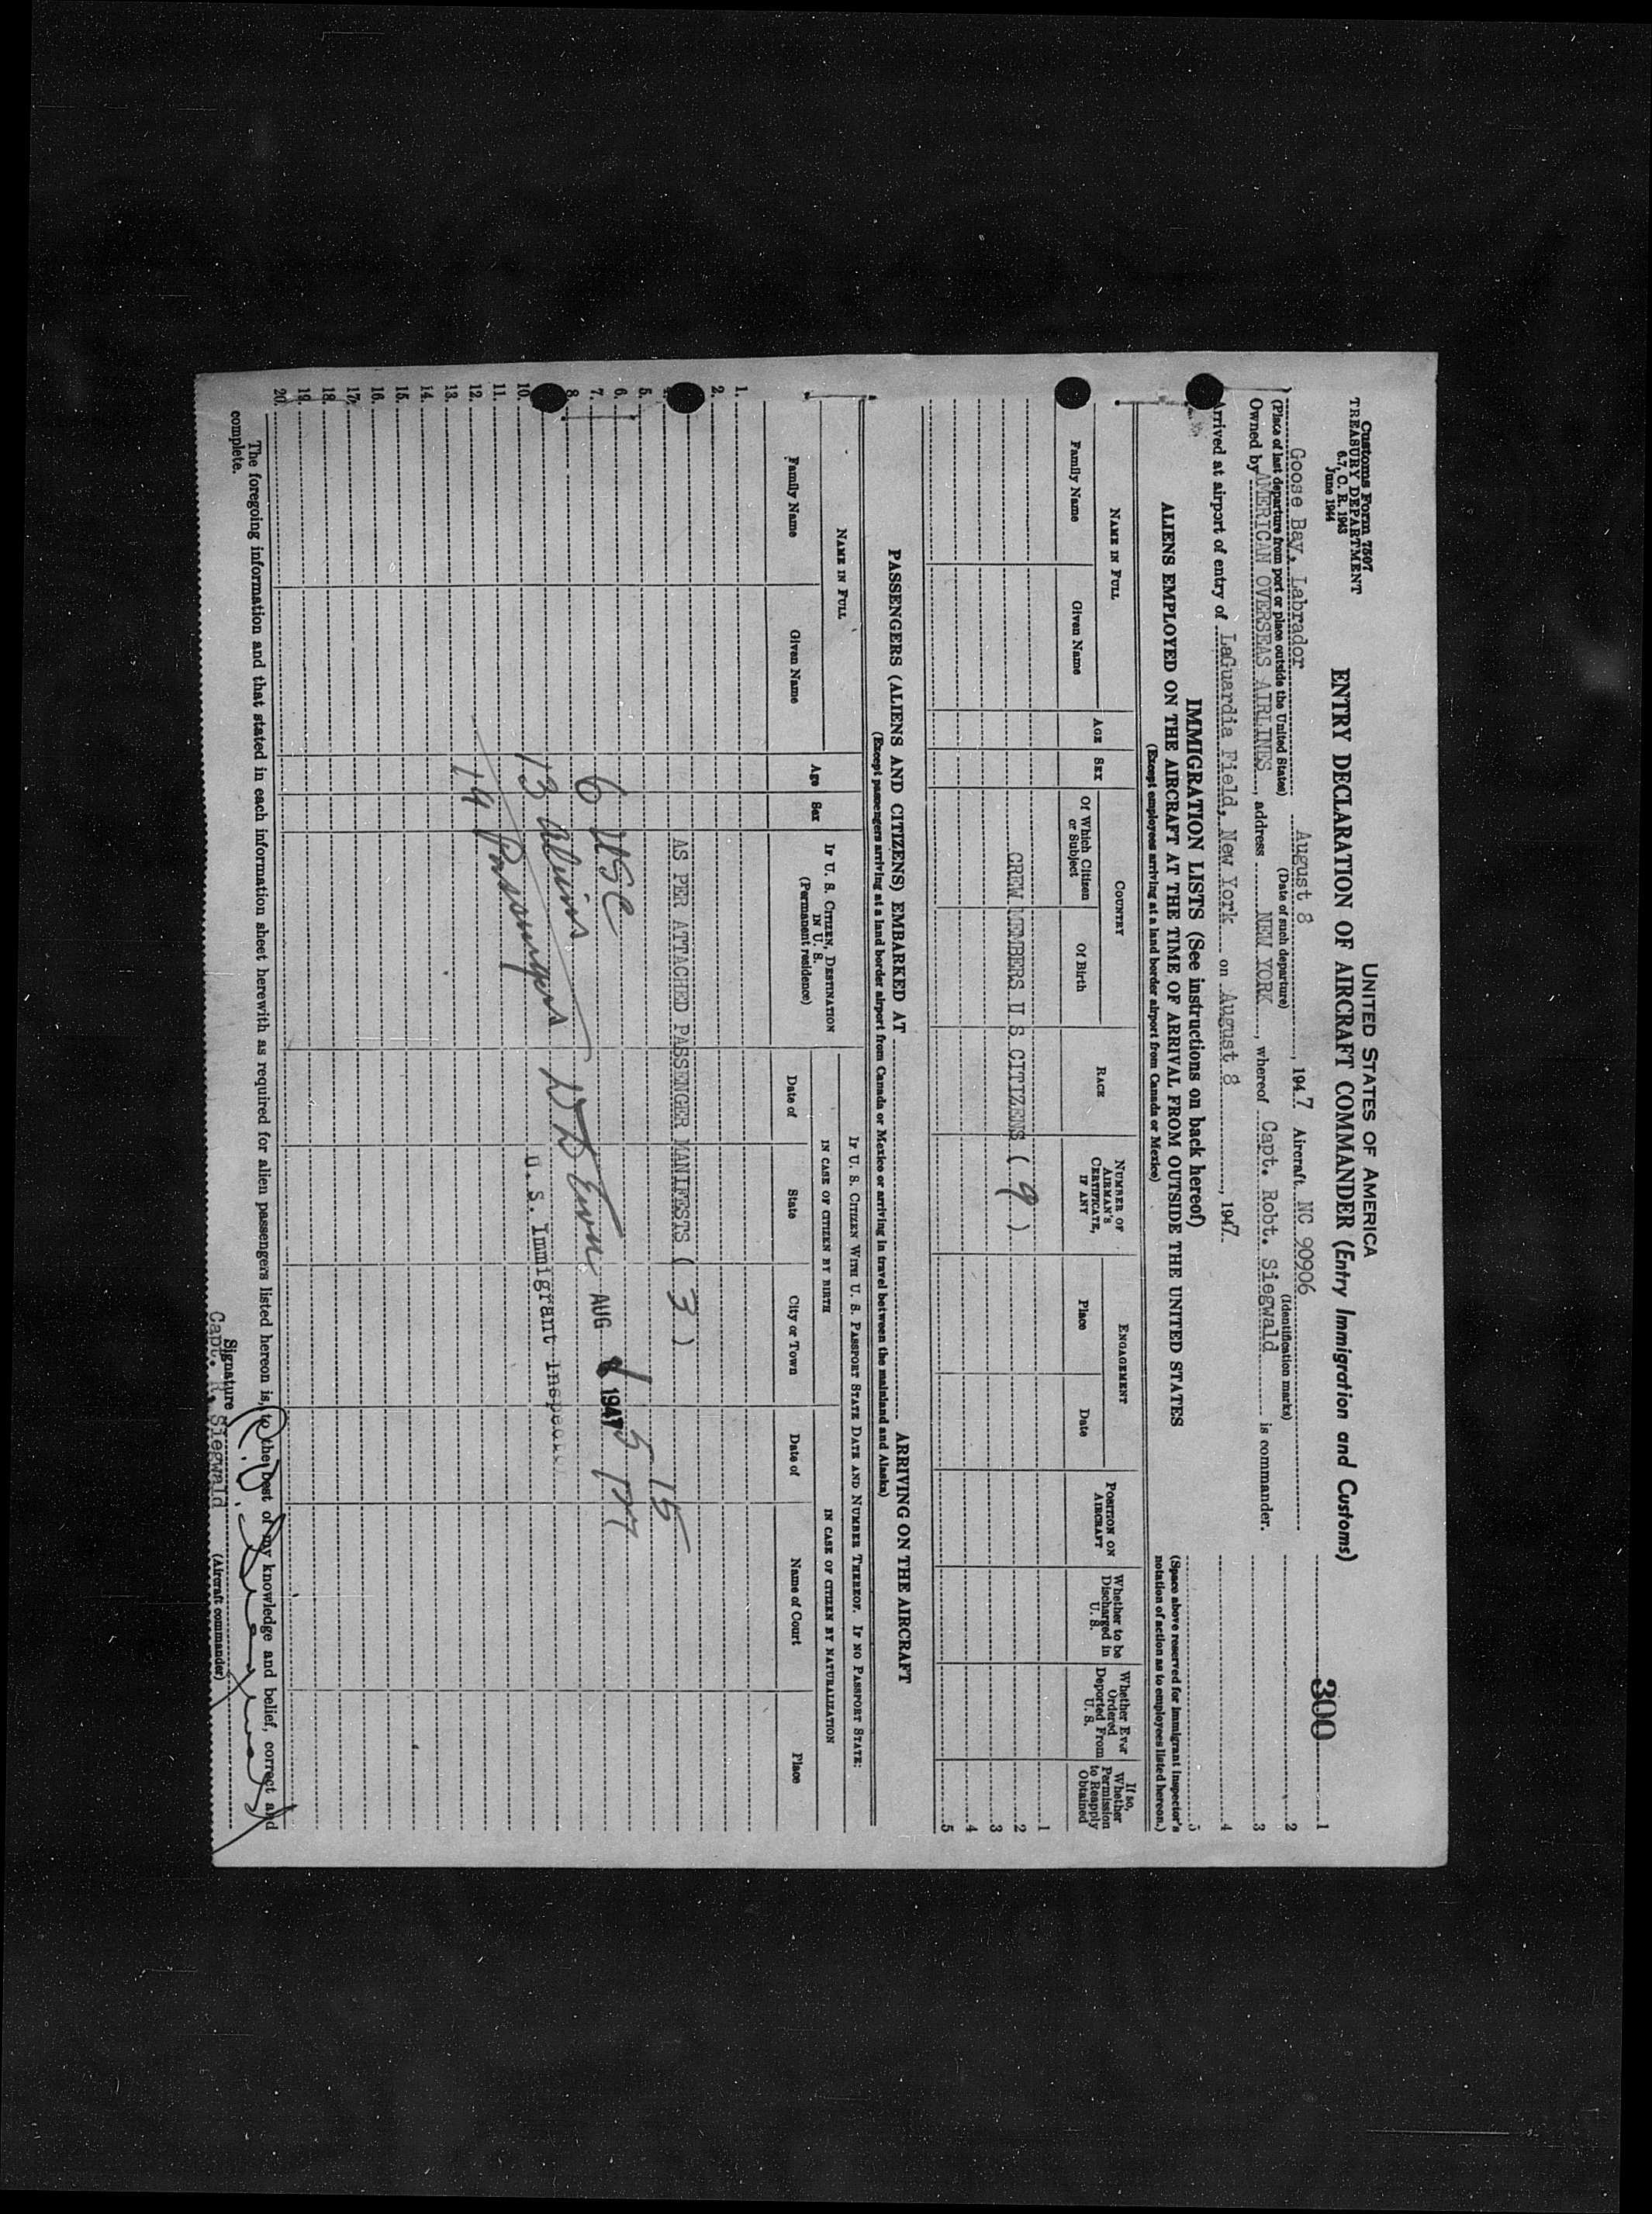 UNITED STATES OF AMERICA
Customs Form 7507
TREASURY DEPARTMENT
6.7, C. R. 1943
June 1944
ENTRY DECLARATION OF AIRCRAFT COMMANDER (Entry Immigration and Customs)
300
1
Goose Bay, Labrador August 8, 1947 Aircraft NC 90906
2
(Place of last departure from port or place outside the United States) (Date of such departure) (Identification marks)
Owned by AMERICAN OVERSEAS AIRLINES, address NEW YORK, whereof Capt. Robt. Siegwald is commander.
3
Arrived at airport of entry of LaGuardia Field, New York on August 8, 1947.
4
IMMIGRATION LISTS (See instructions on back hereof)
5
ALIENS EMPLOYED ON THE AIRCRAFT AT THE TIME OF ARRIVAL FROM OUTSIDE THE UNITED STATES
(Except employees arriving at a land border airport from Canada or Mexico)
(Space above reserved for immigrant inspector's notation of action as to employees listed hereon.)
NAME IN FULL
Family Name
Given Name
AGE
SEX
COUNTRY
Of Which Citizen or Subject
Of Birth
RACE
NUMBER OF AIRMAN'S CERTIFICATE, IF ANY
ENGAGEMENT
Place
Date
POSITION ON AIRCRAFT
Whether to be Discharged in U. S.
Whether Ever Ordered Deported From U. S.
If so, Whether Permission to Reapply Obtained
1
CREW MEMBERS U S CITIZENS ( 9 )
2
3
4
5
PASSENGERS (ALIENS AND CITIZENS) EMBARKED AT ARRIVING ON THE AIRCRAFT
(Except passengers arriving at a land border airport from Canada or Mexico or arriving in travel between the mainland and Alaska)
NAME IN FULL
Family Name
Given Name
Age
Sex
IF U. S. CITIZEN, DESTINATION IN U. S.
(Permanent residence)
IF U. S. CITIZEN WITH U. S. PASSPORT STATE DATE AND NUMBER THEREOF. IF NO PASSPORT STATE:
IN CASE OF CITIZEN BY BIRTH
Date of
State
City or Town
IN CASE OF CITIZEN BY NATURALIZATION
Date of
Name of Court
Place
1.
2.
AS PER ATTACHED PASSENGER MANIFESTS ( 3 )
5.
6.
7.
8.
10.
11.
12.
13.
14.
15.
16.
17.
18.
19.
20.
6 USC
13 Aliens
19 Passengers
AUG 8 1947
5 15 PM
U. S. Immigrant Inspector
The foregoing information and that stated in each information sheet herewith as required for alien passengers listed hereon is, to the best of my knowledge and belief, correct and
complete.
Signature
Capt. R. Siegwald (Aircraft commander)